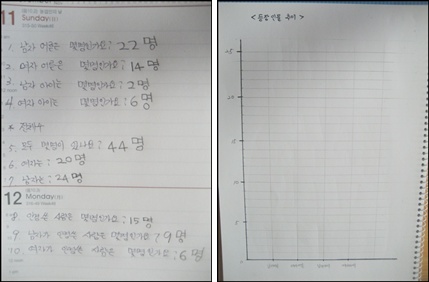 11
Sunday
1. 남자 어른은 몇명인가요; 22 명
2. 여자 어른은 몇명인가요; 14 명
3. 남자 아이는 몇명인가요; 2명
4. 여자 아이는 몇명인가요; 6 명
5. 모두 몇명이 있나요; 44 명
6. 여자는; 20명
7. 남자는; 24명
12
Monday
8. 안경쓴 사람은 몇명인가요; 15명
9. 남자가 안경쓴 사람은 몇명인가요? 9명
10. 여자가 안경쓴 사람은 몇명인가요; 6 명
25
15
10
5
0